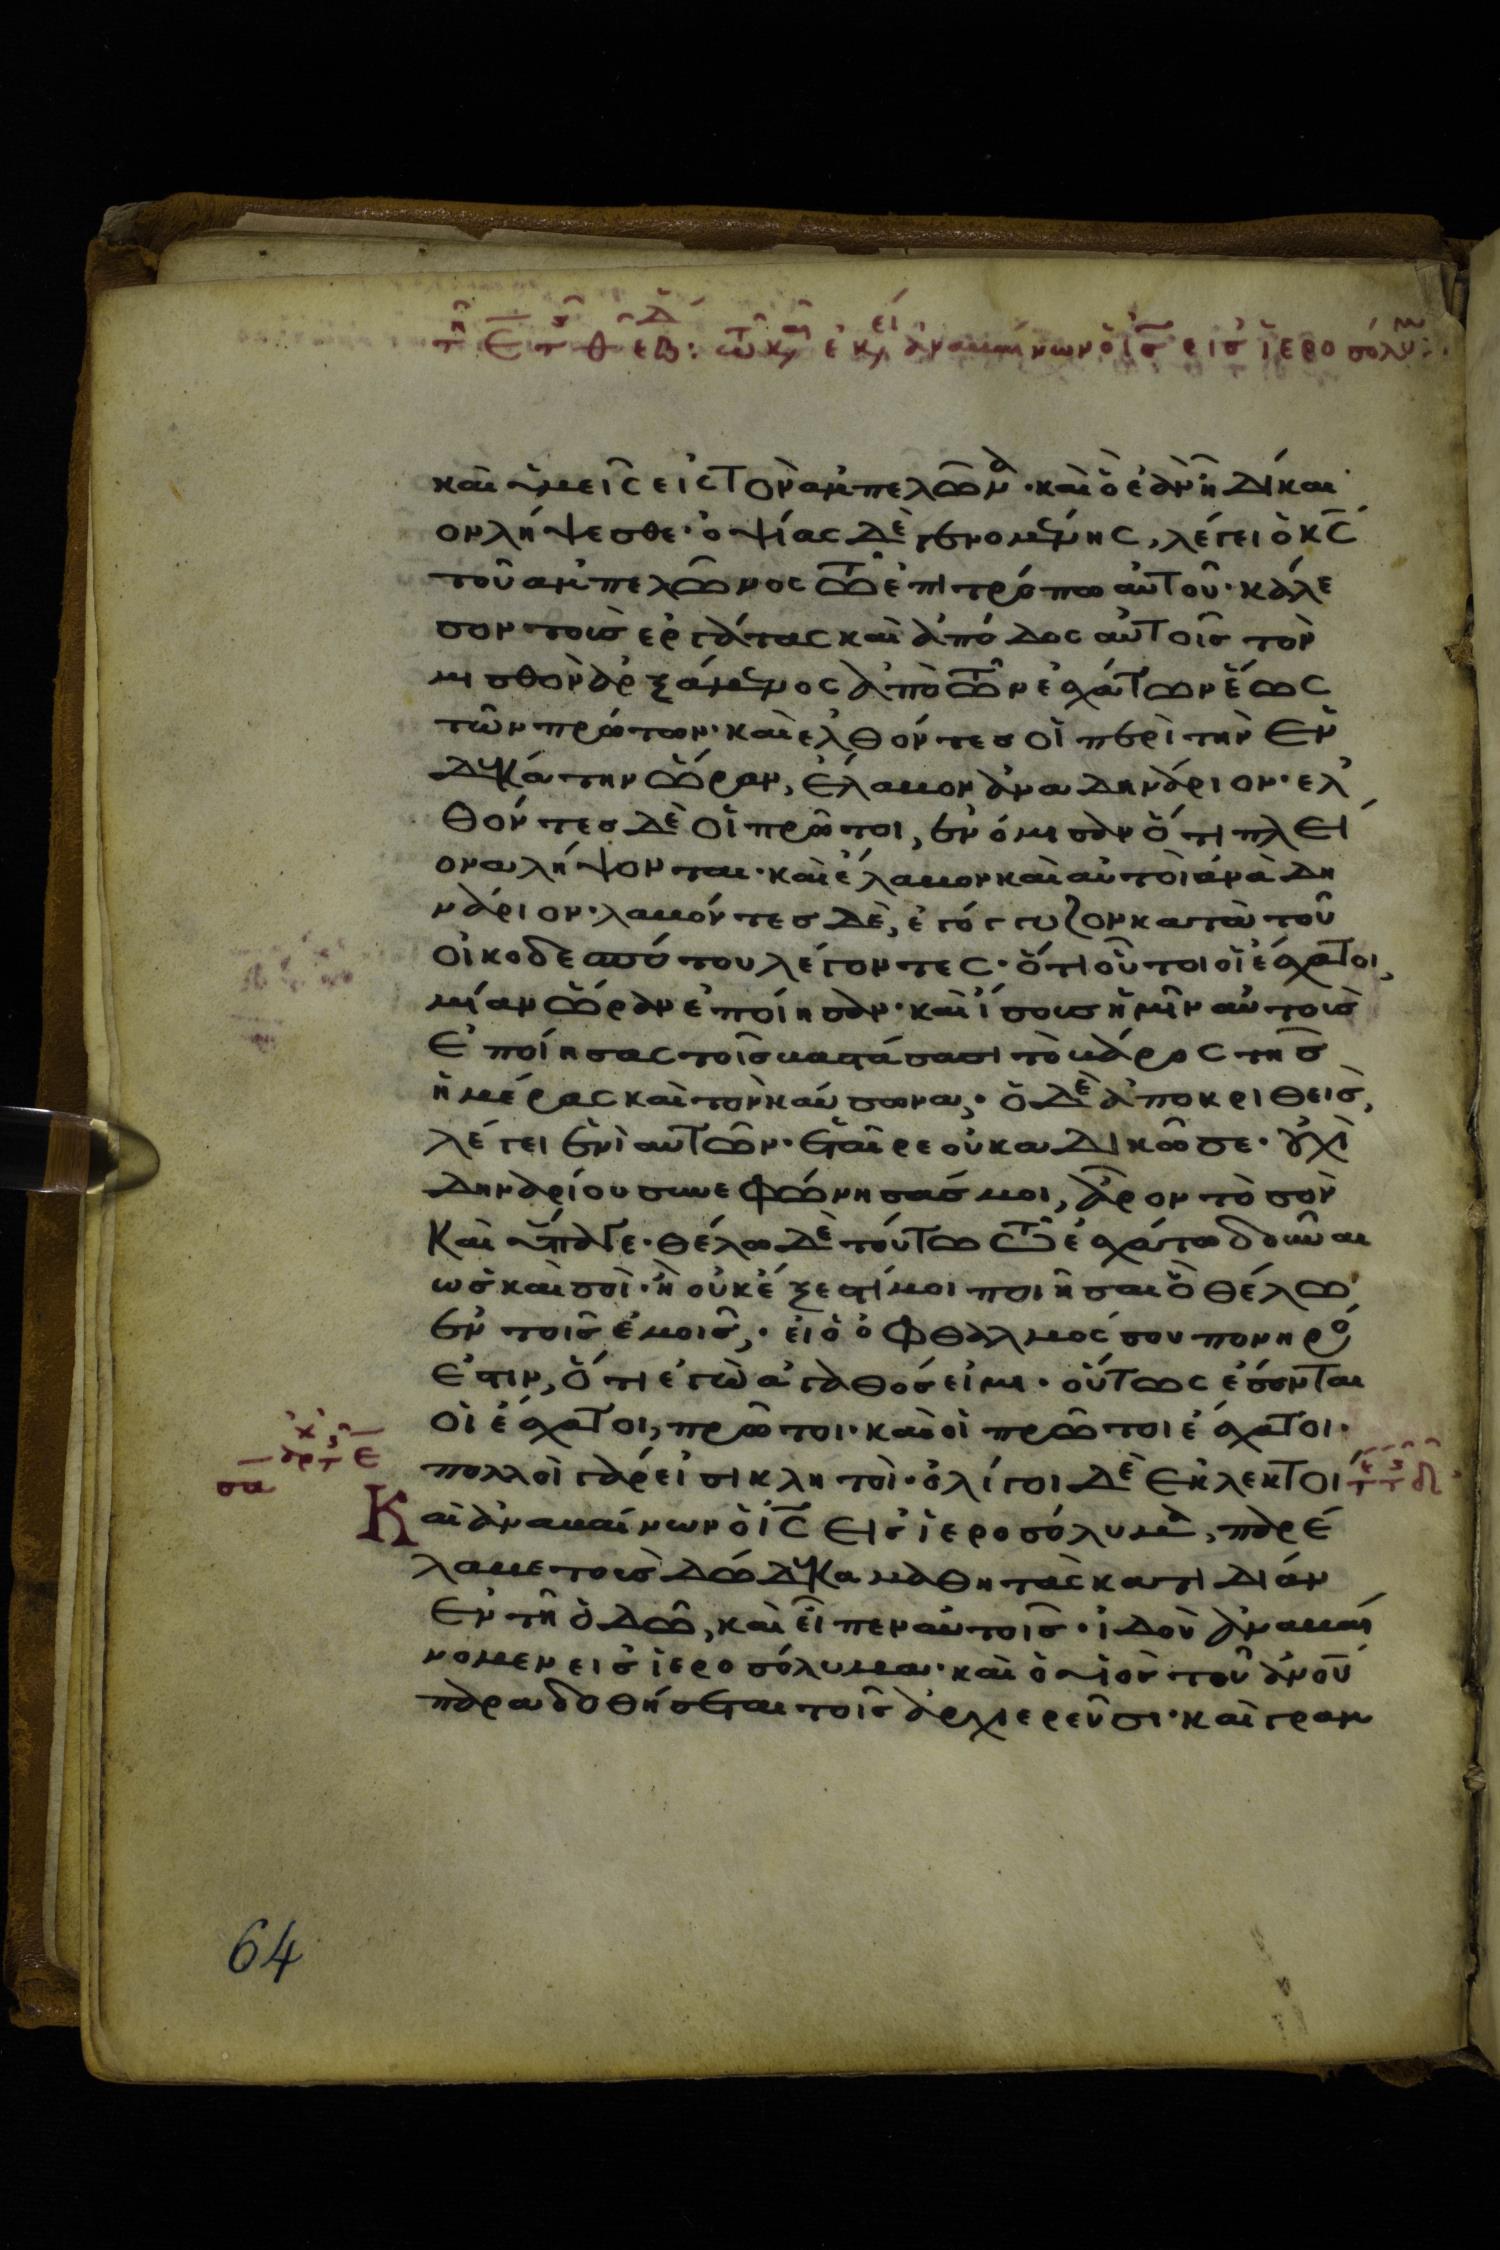 τῆ ε̄ τ θ ἑβ: τῶ και ἐκει ἀναβαίνων ὁ ἰς εἰσ ἱεροσόλυμ
καὶ ὑμεῖς εἰς τὸν ἀμπελῶνα· καὶ ὃ ἐὰν ῆ δίκαι
ον λήψεσθε· ὀψίας δὲ γενομένης, λέγει ὁ κς
τοῦ ἀμπελῶνος τῶ ἐπιτρόπω αὐτοῦ· κάλε
σον τοὺσ ἐργάτας καὶ ἀπόδος αὐτοῖσ τὸν
μισθὸν ἀρξάμενος ἀπὸ τῶν ἐσχάτων ἕως
τῶν πρώτων· καὶ ἐλθόντεσ οἱ περὶ τὴν ἑν
δεκάτην ὥραν, ἔλαβον ἀνα δηνάριον· ἐλ
θόντεσ δὲ οἱ πρῶτοι, ἐνόμισαν ὅτι πλεί
ονα λήψονται· καὶ ἔλαβον καὶ αὐτοὶ ἀνὰ δη
νάριον· λαβόντεσ δὲ, ἐγόγγυζον κατὰ τοῦ
οἰκοδεσπότου λέγοντες· ὅτι οὗτοι οἱ ἔσχατοι,
μίαν ὥραν ἐποίησαν· καὶ ἴσουσ ἡμῖν αὐτοὺσ
ἐποίησας τοῖσ βαστάσασι τὸ βάρος τῆσ
ἡμέρας καὶ τὸν καύσωνα,· ὁ δὲ ἀποκριθεὶσ,
λέγει ἑνὶ αὐτῶν· ἑταῖρε οὐκ ἀδικῶ σε· οὐχὶ
δηναρίου συνεφώνησάσ μοι, ἆρον τὸ σὸν
καὶ ὕπαγε· θέλω δὲ τούτω τῶ ἐσχάτω δοῦναι
ὡσ καὶ σοὶ· ἢ οὐκ ἔξεστί μοι ποιῆσαι ὃ θέλω
ἐν τοῖσ ἐμοῖσ,· εἰ ὁ ὀφθαλμόσ σου πονηρόσ
ἐστιν, ὅτι ἐγὼ ἀγαθόσ εἰμι· οὕτως ἔσονται
οἱ ἔσχατοι, πρῶτοι· καὶ οἱ πρῶτοι ἔσχατοι·
πολλοὶ γάρ εἰσι κλητοὶ· ὀλίγοι δὲ ἐκλεκτοί
σα
αρχ ε̄
Καὶ ἀναβαίνων ὁ ἰς εἰσ ἱεροσόλυμα, παρέ
λαβε τοὺσ δώδεκα μαθητὰς κατιδίαν
ἐν τῆ ὁδῶ, καὶ εἶπεν αὐτοῖσ· ἰδοὺ ἀναβαί
νομεν εἰσ ἱεροσόλυμα· καὶ ὁ υἱὸσ τοῦ ἀνου
παραδοθήσεται τοῖσ ἀρχιερεῦσι· καὶ γραμ
64